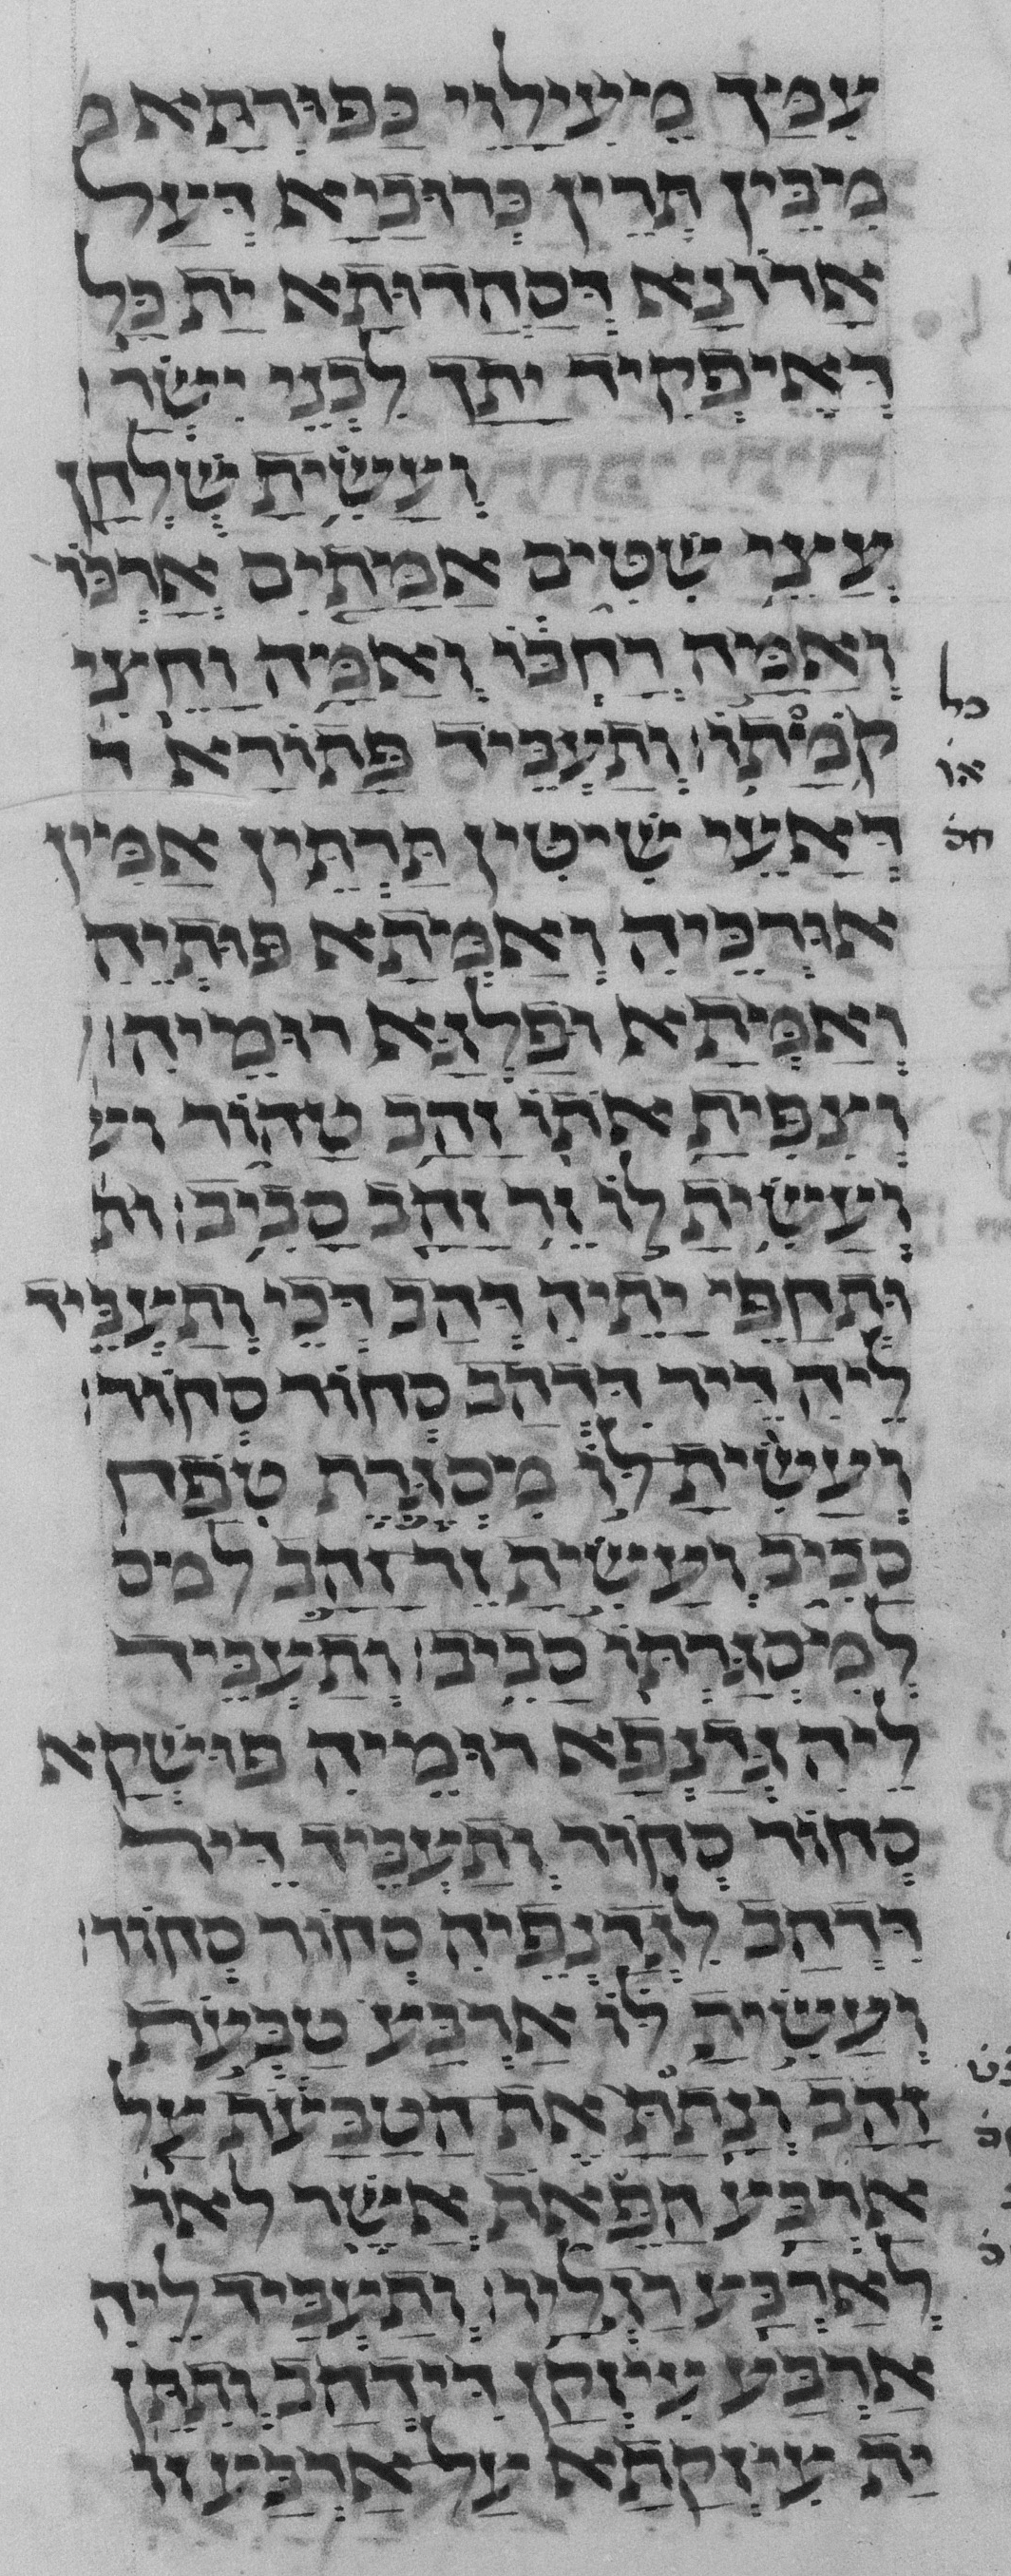 עִמָּךְ מֵעִילָוֵי כָּפּוּרְתָּא מ
מִיבֵּין תְּרֵין כְּרוּבַיָּא דְּעַל
אֲרוֹנָא דְּסָהֲדוּתָא יָת כָּל
דְּאֵיפַקֵּיד יָתָךְ לִבְנֵי יִשְׂרָ׃
וְעָשִׂיתָ שֻׁלְחָן
עֲצֵי שִׁטִּים אַמָּתַיִם אָרְכּוֹ
וְאַמָּה רָחְבּוֹ וְאַמָּה וָחֵצִי
קֹמָתוֹ׃ וְתַעֲבֵיד פָּתוֹרָא ד
דְּאָעֵי שִׁיטִּין תַּרְתֵּין אַמִּין
אוּרְכֵּיהּ וְאַמְּתָא פּוּתְיֵהּ
וְאַמְּתָא וּפַלְגָּא רוּמֵיהּ׃
וְצִפִּיתָ אֹתוֹ זָהָב טָהוֹר וע
וְעָשִׂיתָ לּוֹ זֵר זָהָב סָבִיב׃ ות
וְתַחְפֵּי יָתֵיהּ דְּהַב דְּכֵי וְתַעֲבֵּיד
לֵיהּ דֵּיר דִּדְהַב סְחוֹר סְחוֹר׃
וְעָשִׂיתָ לּוֹ מִסְגֶּרֶת טֹפַח
סָבִיב וְעָשִׂיתָ זֵר זָהָב למס
לְמִיסְגַּרְתּוֹ סָבִיב׃ וְתַעֲבֵּיד
לֵיהּ גְּדָנְפָא רוּמֵיהּ פּוּשְׁקָא
סְחוֹר סְחוֹר וְתַעֲבֵיד דֵּיר
דִּדְהַב לִגְדָנְפֵיהּ סְחוֹר סְחוֹר׃
וְעָשִׂיתָ לּוֹ אַרְבַּע טַבְּעֹת
זָהָב וְנָתַתָּ אֶת הַטַּבָּעֹת עַל
אַרְבַּע הַפֵּאֹת אֲשֶׁר לאר
לְאַרְבַּע רַגְלָיו׃ וְתַעֲבֵיד לֵיהּ
אַרְבַּע עִיזְקָן דִּידְהַב וְתִתֵּן
יָת עִיזְקָתָא עַל אַרְבַּע זו
כל
או